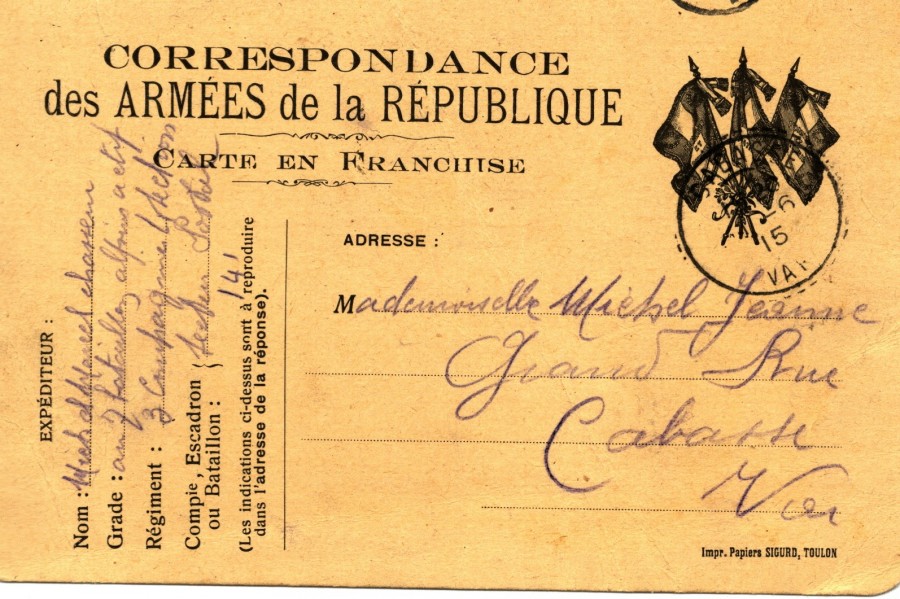 CORRESPONDANCE
des ARMÉES de la RÉPUBLIQUE
CARTE EN FRANCHISE
6
15
VAR
ADRESSE :
Mademoiselle Michel Jeanne
Grand Rue
Cabasse
Var
Impr. Papiers SIGURD, TOULON
EXPÉDITEUR :
Nom : Michel chasseur
Grade : au 7 bataillon alpins actif
Régiment : 3 Compagnie
Compie, Escadron
ou Bataillon : secteur Postal
141
(Les indications ci-dessus sont à reproduire
dans l'adresse de la réponse).